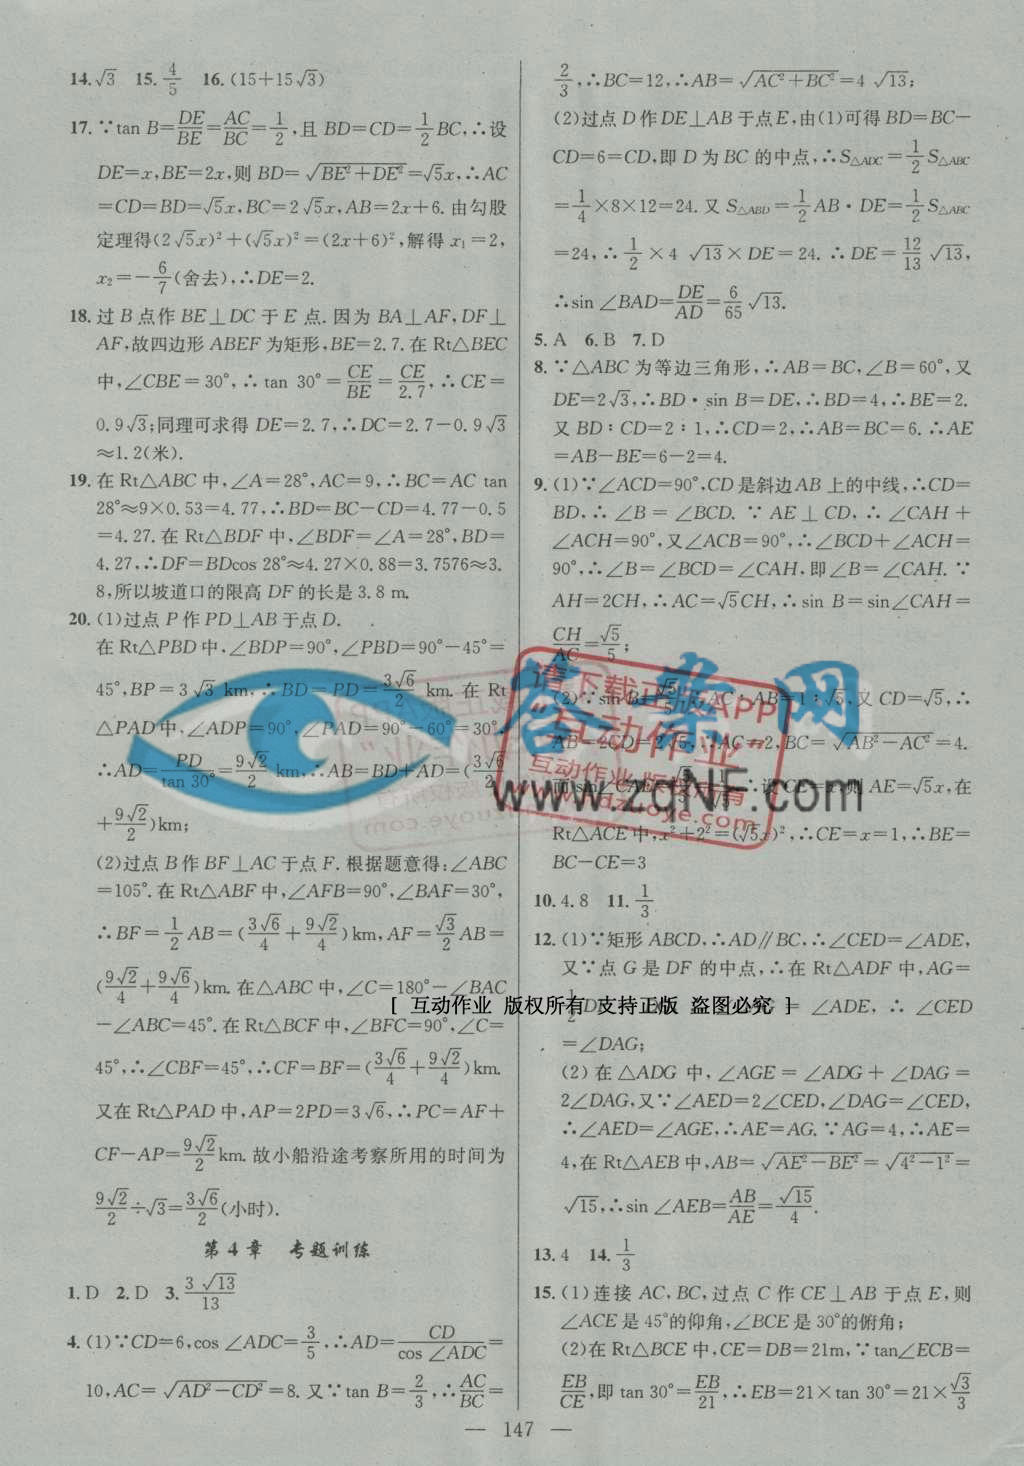 14. √3 15. 4/5 16. (15+15√3)
17. ∵tan B=DE/BE=AC/BC=1/2,且 BD=CD=1/2BC,∴设
DE=x,BE=2x,则 BD=√(BE²+DE²)=√5x,∴AC
=CD=BD=√5x,BC=2√5x,AB=2x+6. 由勾股
定理得(2√5x)²+(√5x)²=(2x+6)²,解得 x₁=2,
x₂=-6/7(舍去),∴DE=2.
18. 过 B 点作 BE⊥DC 于 E 点. 因为 BA⊥AF,DF⊥
AF,故四边形 ABEF 为矩形,BE=2.7. 在 Rt△BEC
中,∠CBE=30°,∴tan 30°=CE/BE=CE/2.7,∴CE=
0.9√3;同理可求得 DE=2.7,∴DC=2.7-0.9√3
≈1.2(米).
19. 在 Rt△ABC 中,∠A=28°,AC=9,∴BC=AC tan
28°≈9×0.53=4.77,∴BD=BC-CD=4.77-0.5
=4.27. 在 Rt△BDF 中,∠BDF=∠A=28°,BD=
4.27,∴DF=BDcos 28°≈4.27×0.88=3.7576≈3.
8,所以坡道口的限高 DF 的长是 3.8 m.
20. (1)过点 P 作 PD⊥AB 于点 D.
在 Rt△PBD 中,∠BDP=90°,∠PBD=90°-45°=
45°,BP=3√3 km,∴BD=PD=3√6/2 km. 在 Rt
△PAD 中,∠ADP=90°,∠PAD=90°-60°=30°,
∴AD=PD/tan 30°=9√2/2 km,∴AB=BD+AD=(3√6/2
+9√2/2)km;
(2)过点 B 作 BF⊥AC 于点 F. 根据题意得:∠ABC
=105°. 在 Rt△ABF 中,∠AFB=90°,∠BAF=30°,
∴BF=1/2AB=(3√6/4+9√2/4)km,AF=√3/2AB=
(9√2/4+9√6/4)km. 在△ABC 中,∠C=180°-∠BAC
-∠ABC=45°. 在 Rt△BCF 中,∠BFC=90°,∠C=
45°,∴∠CBF=45°,∴CF=BF=(3√6/4+9√2/4)km.
又在 Rt△PAD 中,AP=2PD=3√6,∴PC=AF+
CF-AP=9√2/2km. 故小船沿途考察所用的时间为
9√2/2÷√3=3√6/2(小时).
第4章 专题训练
1. D 2. D 3. 3√13/13
4. (1)∵CD=6,cos ∠ADC=3/5,∴AD=CD/cos ∠ADC=
10,AC=√(AD²-CD²)=8. 又∵tan B=2/3,∴AC/BC=
2/3,∴BC=12,∴AB=√(AC²+BC²)=4√13;
(2)过点 D 作 DE⊥AB 于点 E,由(1)可得 BD=BC-
CD=6=CD,即 D 为 BC 的中点,∴S△ADC=1/2S△ABC
=1/4×8×12=24. 又 S△ABD=1/2AB·DE=1/2S△ABC
=24,∴1/2×4√13×DE=24. ∴DE=12/13√13,
∴sin ∠BAD=DE/AD=6/65√13.
5. A 6. B 7. D
8. ∵△ABC 为等边三角形,∴AB=BC,∠B=60°,又
DE=2√3,∴BD·sin B=DE,∴BD=4,∴BE=2.
又 BD∶CD=2∶1,∴CD=2,∴AB=BC=6. ∴AE
=AB-BE=6-2=4.
9. (1)∵∠ACD=90°,CD是斜边AB上的中线,∴CD=
BD,∴∠B=∠BCD. ∵AE⊥CD,∴∠CAH+
∠ACH=90°,又∠ACB=90°,∴∠BCD+∠ACH=
90°,∴∠B=∠BCD=∠CAH,即∠B=∠CAH. ∵
AH=2CH,∴AC=√5CH,∴sin B=sin∠CAH=
CH/AC=√5/5;
(2)∵sin B=√5/5,∴AC∶AB=1∶√5,又 CD=√5,∴
AB=2CD=2√5,∴AC=2,BC=√(AB²-AC²)=4.
而sin∠CAH=√5/5=1/√5,∴设 CE=x,则 AE=√5x,在
Rt△ACE中,x²+2²=(√5x)²,∴CE=x=1,∴BE=
BC-CE=3
10. 4.8 11. 1/3
12. (1)∵矩形 ABCD,∴AD∥BC,∴∠CED=∠ADE,
又∵点 G 是 DF 的中点,∴在 Rt△ADF 中,AG=
∠ADE,∴∠CED
=∠DAG;
(2)在△ADG 中,∠AGE=∠ADG+∠DAG=
2∠DAG,又∵∠AED=2∠CED,∠DAG=∠CED,
∴∠AED=∠AGE,∴AE=AG. ∵AG=4,∴AE=
4,在 Rt△AEB 中,AB=√(AE²-BE²)=√(4²-1²)=
√15,∴sin ∠AEB=AB/AE=√15/4.
13. 4 14. 1/3
15. (1)连接 AC,BC,过点 C 作 CE⊥AB 于点 E,则
∠ACE是45°的仰角,∠BCE是30°的俯角;
(2)在Rt△BCE中,CE=DB=21m,∵tan∠ECB=
EB/CE,即 tan 30°=EB/21,∴EB=21×tan 30°=21×√3/3
— 147 —
答案网
www.zqNF.com
请下载正版APP
"互动作业"
互动作业 版权所有
[ 互动作业 版权所有 支持正版 盗图必究 ]